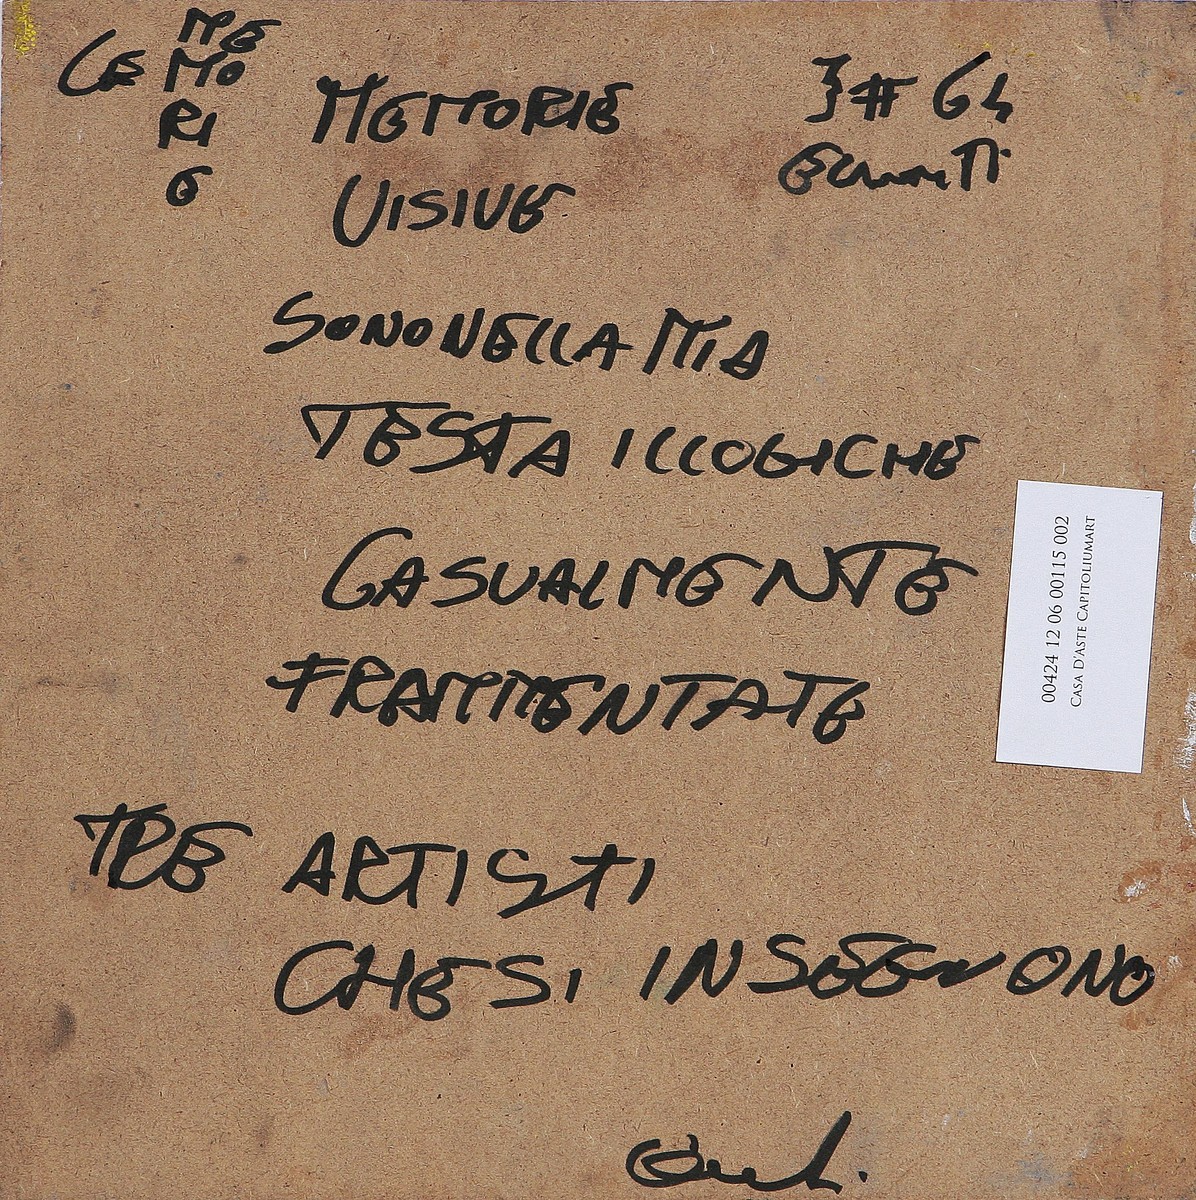 LE MEMORIE
MEMORIE
VISIVE
SONO NELLA MIA
TESTA ILLOGICHE
CASUALMENTE
FRAMMENTATE
TRE ARTISTI
CHE SI INSEGUONO
00424 12 06 00115 002
CASA D'ASTE CAPITOLIUMART